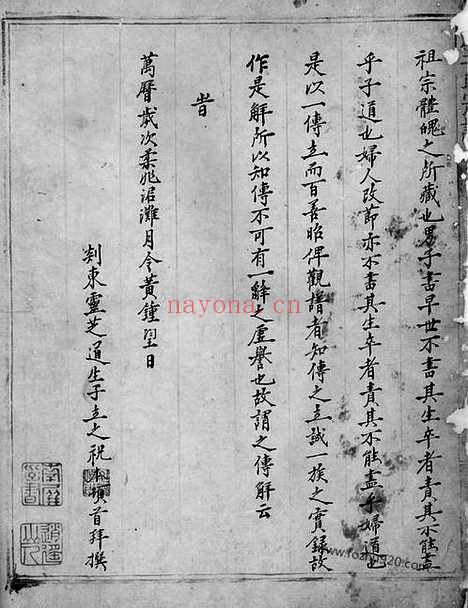 祖宗體魄之所藏也男子書早世不書其生卒者責其不能盡
乎子道也婦人改節亦不書其生卒者責其不能盡乎婦道也
是以一傳立而百善昭俾觀譜者知傳之立誠一族之實錄故
作是解所以知傳不可有一辭之虛譽也故謂之傳解云
旹
萬曆歲次柔兆涒灘月令黃鍾望日
剡東靈芝道生子立之祝頓首拜撰
nayona.cn